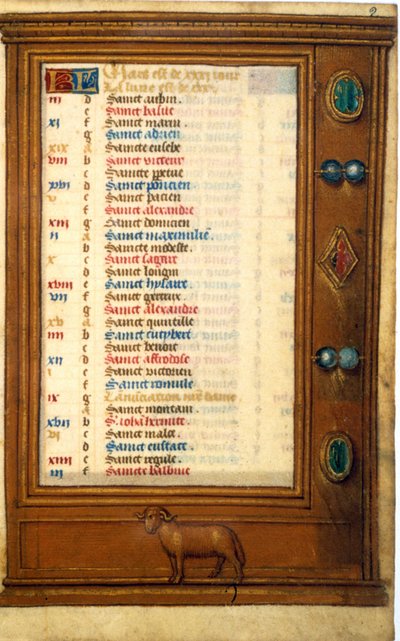 2
KL Mars est de xxxi iour
La lune est de xxx
iii d Sainct aubin.
e Sainct basile
xi f Sainct marin.
g Sainct adrien
xix A Saincte eusebe
viii b Sainct victeur
c Saincte
xvi d Sainct poncien
v e Sainct pacien
f Sainct alexandre
xiii g Sainct domicien
ii A Sainct maximilie.
b Saincte modeste.
x c Sainct
d Sainct longin
xviii e Sainct hylaire.
vii f Sainct
g Sainct alexandre
xv A Sainct quintille
iiii b Sainct cutpbert
c Sainct benoit
xii d Sainct affrodose
i e Sainct victorien
f Sainct romule
ix g Lanunciation nre dame
A Sainct montain
xvii b S. iohan hermite.
vi c Sainct
d Sainct eustace.
xiiii e Sainct regule.
iii f Saincte balbine